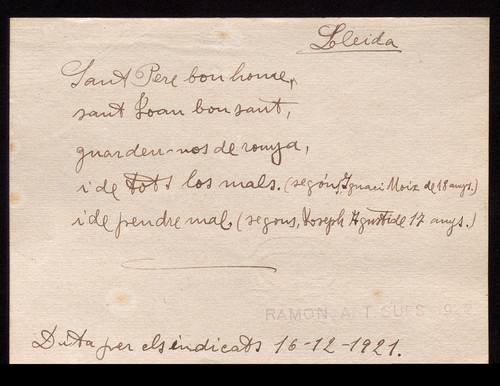 Lleida
Sant Pere bon home,
sant Joan bon sant,
guarden-nos de ronya,
i de tots los mals. (segóns, Ignaci Moix de 18 anys.)
i de pendre mal. (segons, Joseph Agustí de 17 anys.)
RAMON
Dita per els indicats 16-12-1921.